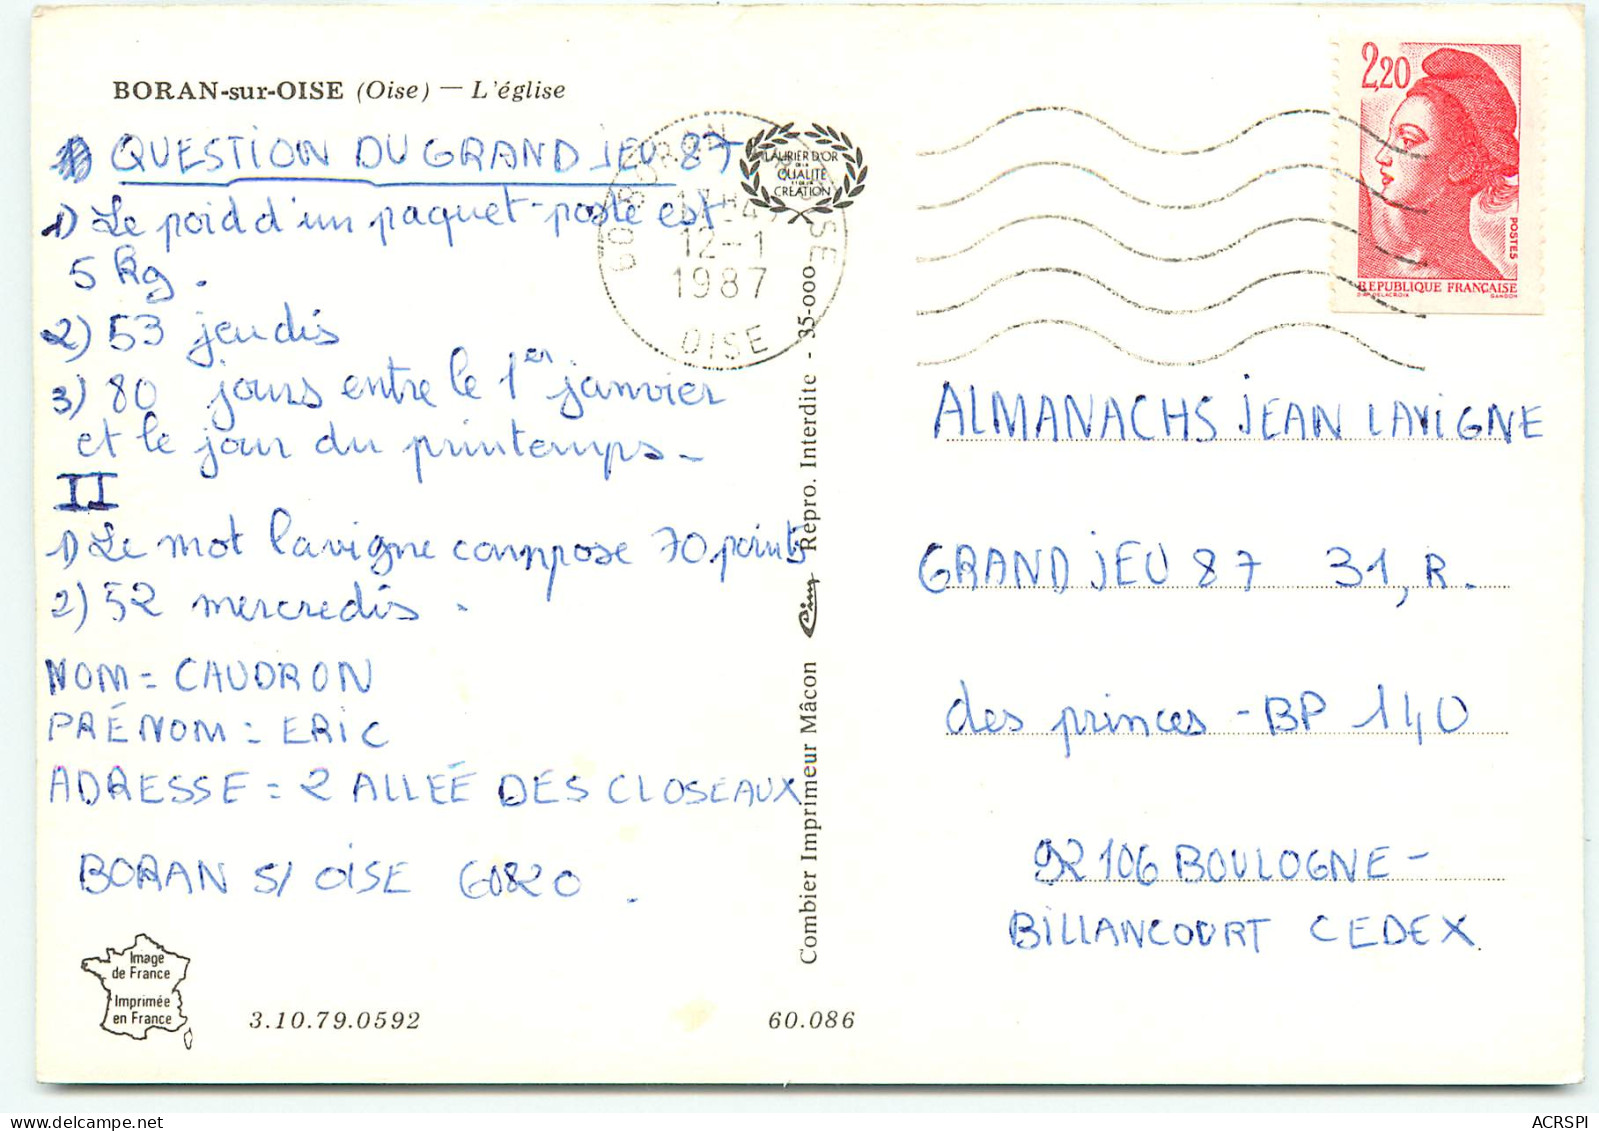 BORAN-sur-OISE (Oise) — L'église
QUESTION DU GRAND JEU 87
1) Le poid d'un paquet-poste est
5 kg.
2) 53 jeudis
3) 80 jours entre le 1er janvier
et le jour du printemps -
II
1) Le mot lavigne compose 70 points
2) 52 mercredis.
NOM = CAUDRON
PRÉNOM = ERIC
ADRESSE = 2 ALLÉE DES CLOSEAUX
BORAN S/ OISE 60820.
Image
de France
Imprimée
en France
3.10.79.0592
60.086
Combier Imprimeur Mâcon Cim Repro. Interdite - 35-000
LAURIER D'OR
DE LA
QUALITÉ
ET DE LA
CRÉATION
60 BORAN
OISE
12-1
1987
OISE
2,20
POSTES
REPUBLIQUE FRANÇAISE
D'AP. DELACROIX GANDON
ALMANACHS JEAN LAVIGNE
GRAND JEU 87 31, R.
des princes - BP 140
92106 BOULOGNE -
BILLANCOURT CEDEX
ACRSPI